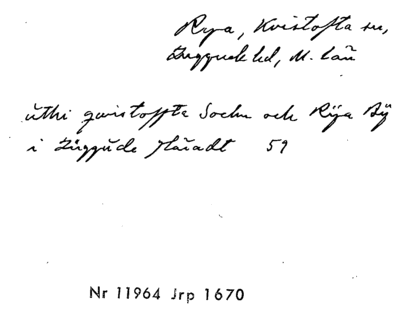 Rya, Kvistofta sn,
Luggude hd, M. län
üthi qwistoffta Sochn och Rÿa Bÿ
i Lüggüde Häradt 59
Nr 11964 Jrp 1670